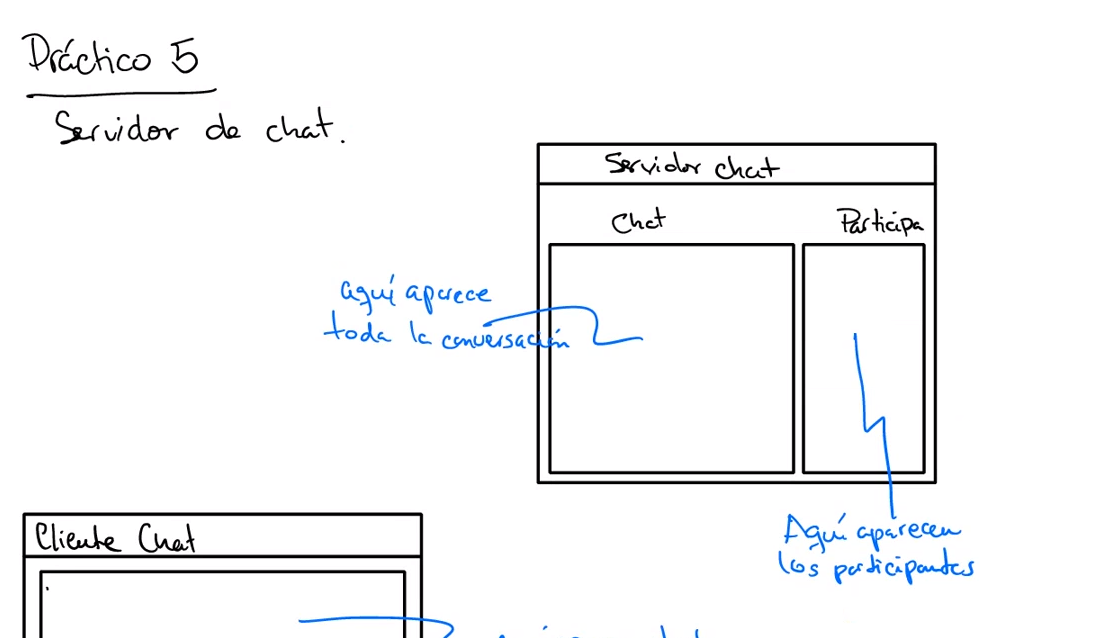 Práctico 5
Servidor de chat.
Servidor chat
Chat
Participa
aquí aparece
toda la conversación
Aquí aparecen
los participantes
Cliente Chat